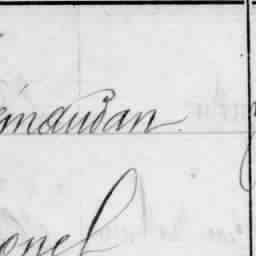 emaudan
onel